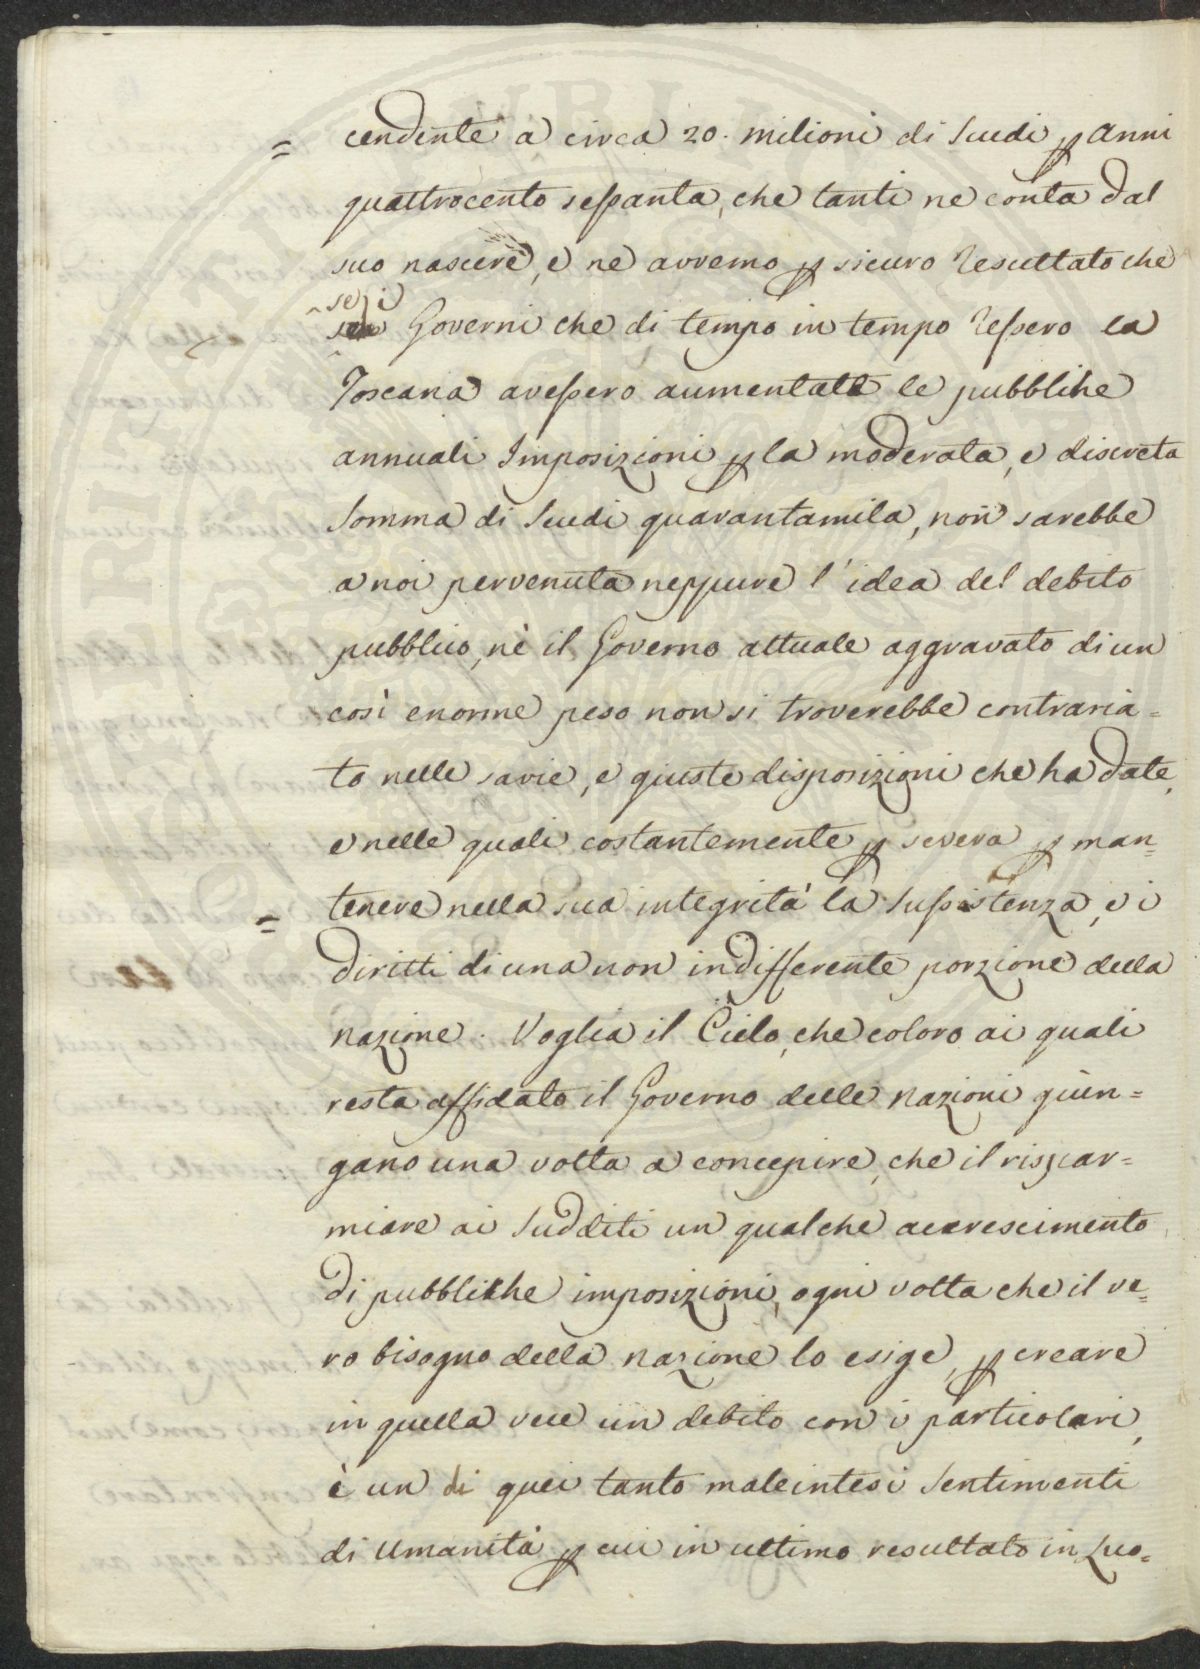 = cendente a circa 20. milioni di Scudi p Anni
quattrocento sessanta, che tanti ne conta dal
suo nascere, e ne avremo p sicuro resultato che
se i Governi che di tempo in tempo ressero la
Toscana avessero aumentate le pubbliche
annuali Imposizioni p la moderata, e discreta
Somma di Scudi quarantamila, non sarebbe
a noi pervenuta neppure l'idea del debito
pubblico, nè il Governo attuale aggravato di un
così enorme peso non si troverebbe contraria=
to nelle savie, e giuste disposizioni che ha date,
e nelle quali costantemente p severa p man=
= tenere nella sua integrità la Sussistenza, e i
diritti di una non indifferente porzione della
nazione. Voglia il Cielo, che coloro ai quali
resta affidato il Governo delle nazioni giun=
gano una volta a concepire, che il rispar=
miare ai Sudditi un qualche accrescimento
di pubbliche imposizioni, ogni volta che il ve=
ro bisogno della nazione lo esige, p creare
in quella vece un debito con i particolari,
è un di quei tanto maleintesi Sentimenti
di Umanità p cui in ultimo resultato in Luo=